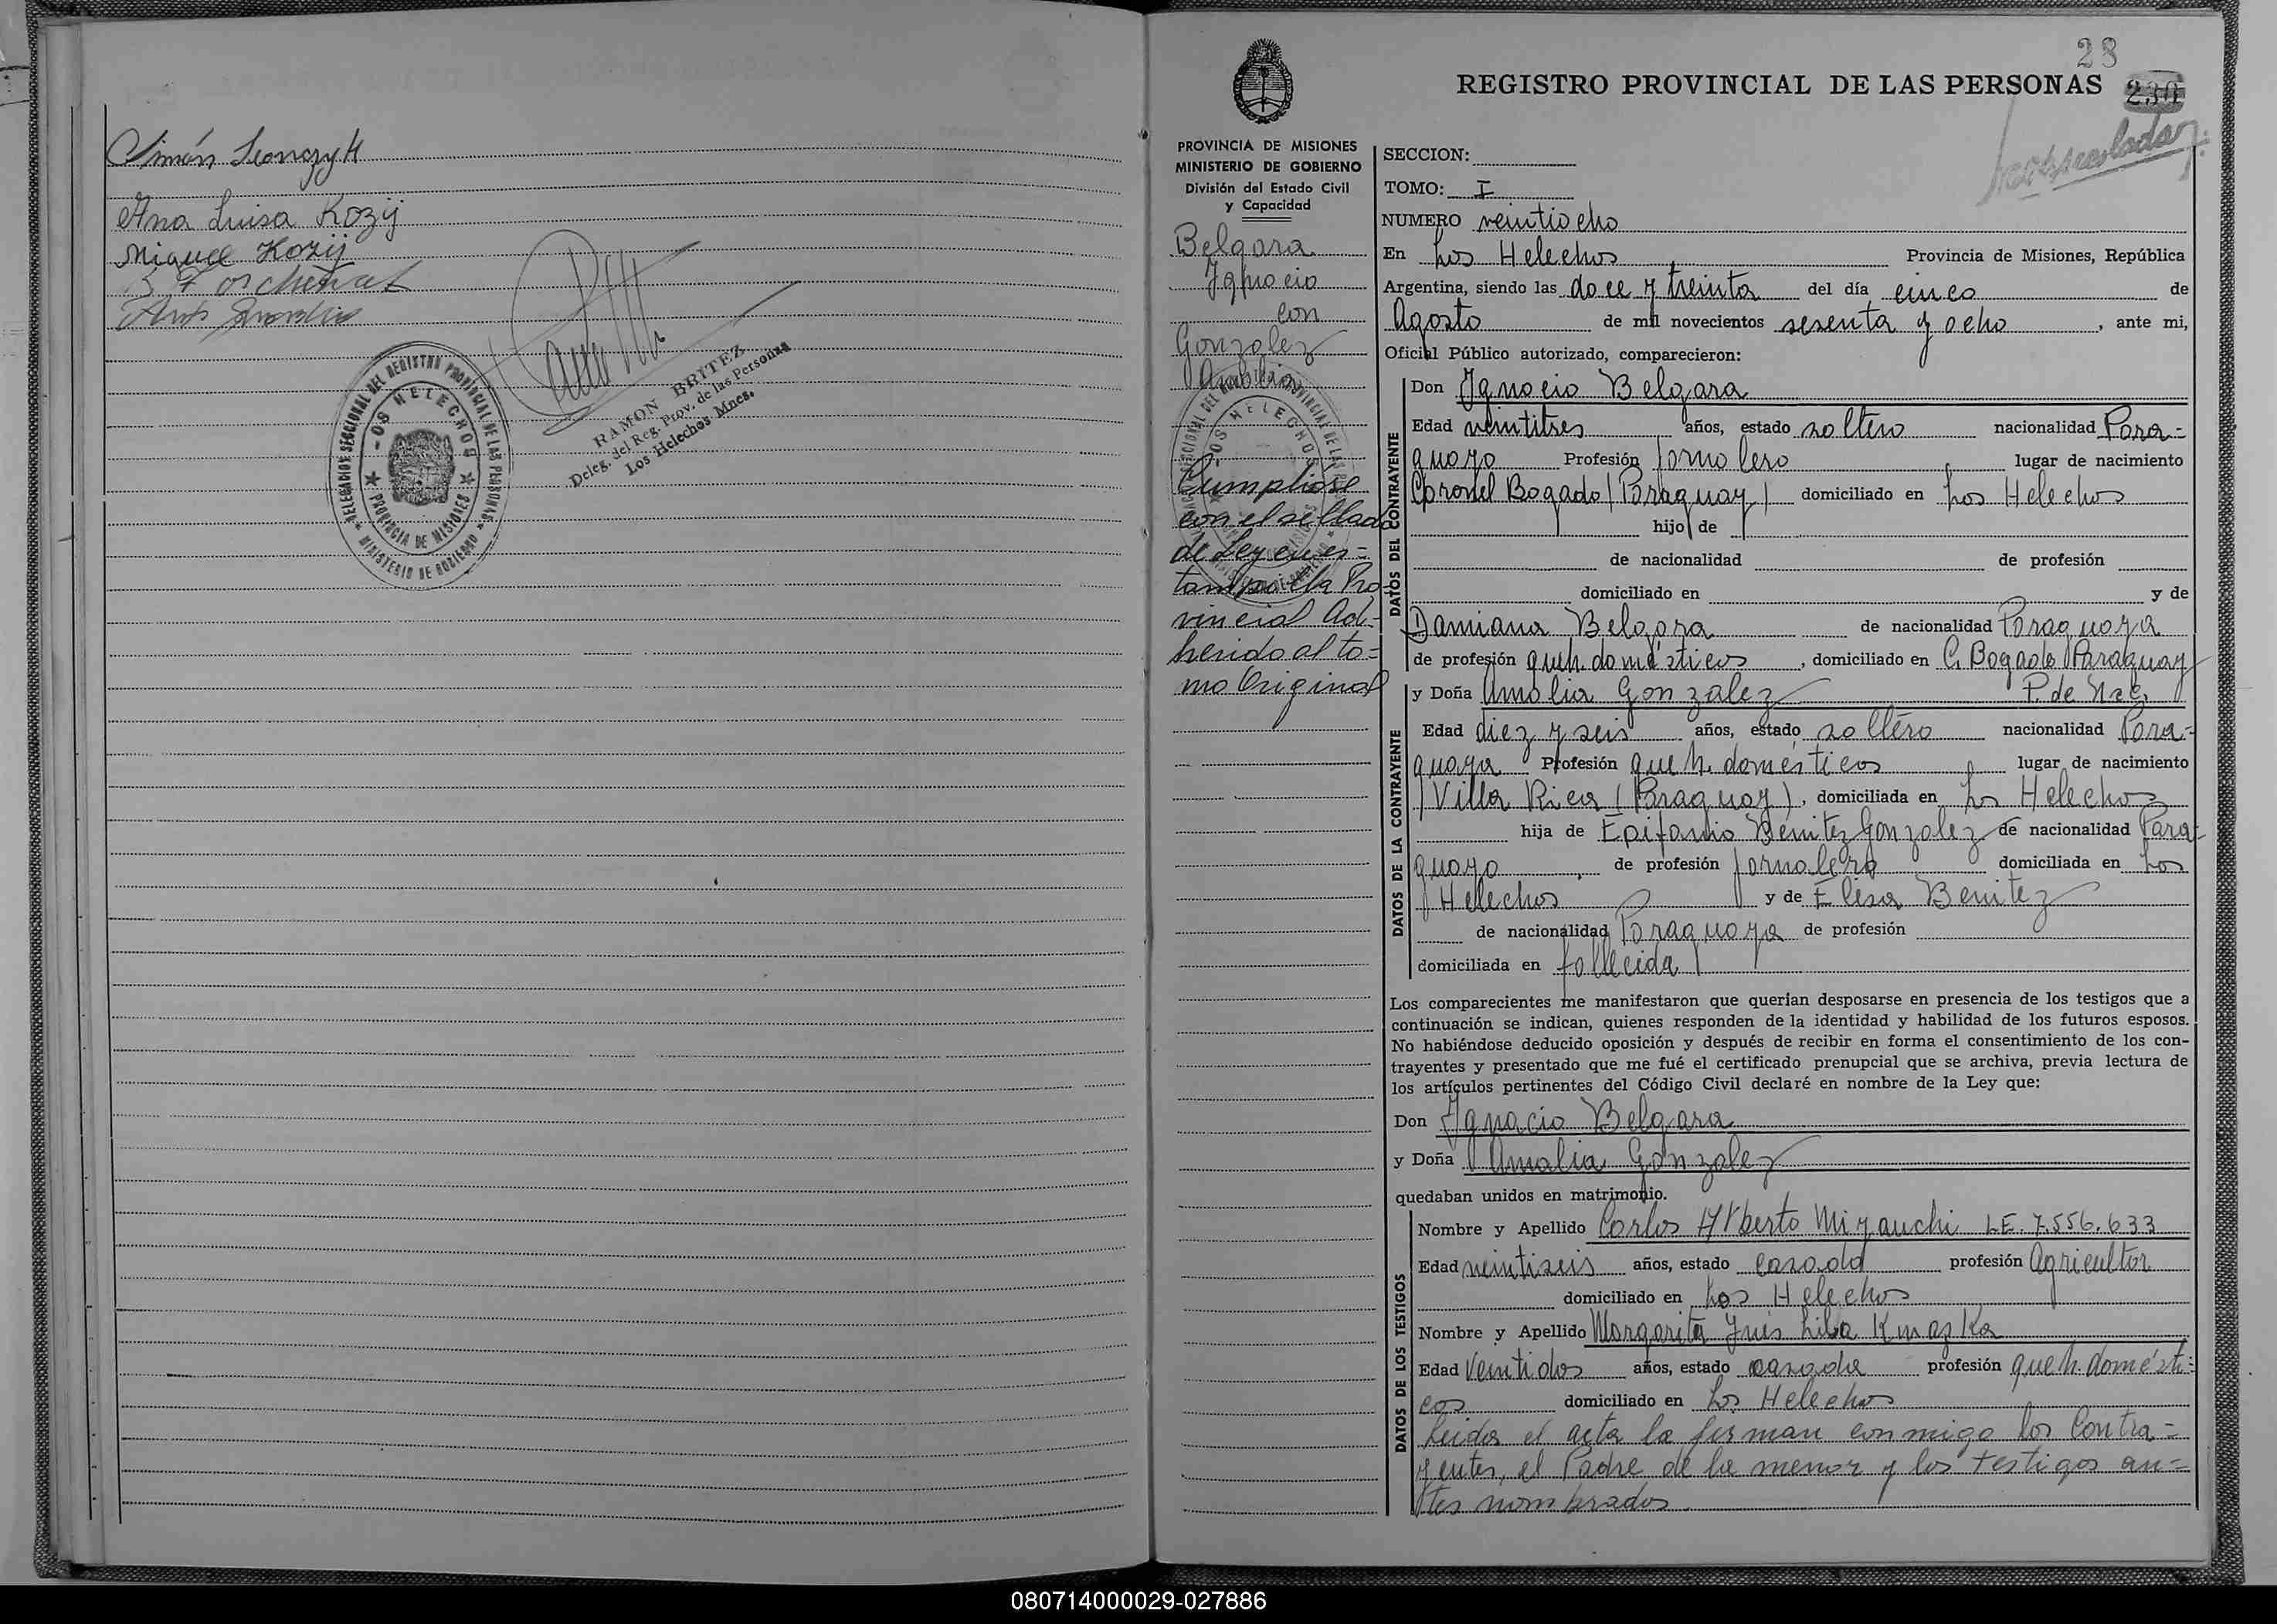 Simón Leonczyk
Ana Luisa Kozij
Miguel Kozij
DELEGACION SECCIONAL DEL REGISTRO PROVINCIAL DE LAS PERSONAS
LOS HELECHOS
PROVINCIA DE MISIONES
MINISTERIO DE GOBIERNO
RAMON BRITEZ
Deleg. del Reg. Prov. de las Personas
Los Helechos Mnes.
28
REGISTRO PROVINCIAL DE LAS PERSONAS
230
PROVINCIA DE MISIONES
MINISTERIO DE GOBIERNO
División del Estado Civil
y Capacidad
Belgara
Ignacio
con
Gonzalez
Amalia
Cumpliose
con el sellado
de Ley en es=
tampilla Pro
vincial Ad-
herido al to=
mo Original
SECCION:
TOMO: I
NUMERO veintiocho
En Los Helechos Provincia de Misiones, República
Argentina, siendo las doce y treinta del día cinco de
Agosto de mil novecientos sesenta y ocho, ante mi,
Oficial Público autorizado, comparecieron:
DATOS DEL CONTRAYENTE
Don Ignacio Belgara
Edad veintitres años, estado soltero nacionalidad Para=
guayo Profesión Jornalero lugar de nacimiento
Coronel Bogado (Paraguay) domiciliado en Los Helechos
hijo de
de nacionalidad de profesión
domiciliado en y de
Damiana Belgara de nacionalidad Paraguaya
de profesión queh. domésticos, domiciliado en C. Bogado Paraguay
y Doña Amalia Gonzalez P. de Nac.
DATOS DE LA CONTRAYENTE
Edad diez y seis años, estado soltera nacionalidad Para=
guaya Profesión queh. domésticos lugar de nacimiento
Villa Rica (Paraguay), domiciliada en Los Helechos
hija de Epifanio Benitez Gonzalez de nacionalidad Para-
guayo, de profesión Jornalero domiciliada en Los
Helechos y de Elisa Benitez
de nacionalidad Paraguaya de profesión
domiciliada en fallecida
Los comparecientes me manifestaron que querían desposarse en presencia de los testigos que a
continuación se indican, quienes responden de la identidad y habilidad de los futuros esposos.
No habiéndose deducido oposición y después de recibir en forma el consentimiento de los con-
trayentes y presentado que me fué el certificado prenupcial que se archiva, previa lectura de
los artículos pertinentes del Código Civil declaré en nombre de la Ley que:
Don Ignacio Belgara
y Doña Amalia Gonzalez
quedaban unidos en matrimonio.
DATOS DE LOS TESTIGOS
Nombre y Apellido Carlos Alberto Miyauchi L.E. 7.556.633
Edad veintiseis años, estado casado profesión Agricultor
domiciliado en Los Helechos
Nombre y Apellido Margarita Ynés Knazka
Edad Veintidos años, estado casada profesión queh. domésti=
cos domiciliado en Los Helechos
Leida el acta la firman conmigo los Contra=
yentes, el Padre de la menor y los testigos an=
tes nombrados.
080714000029-027886